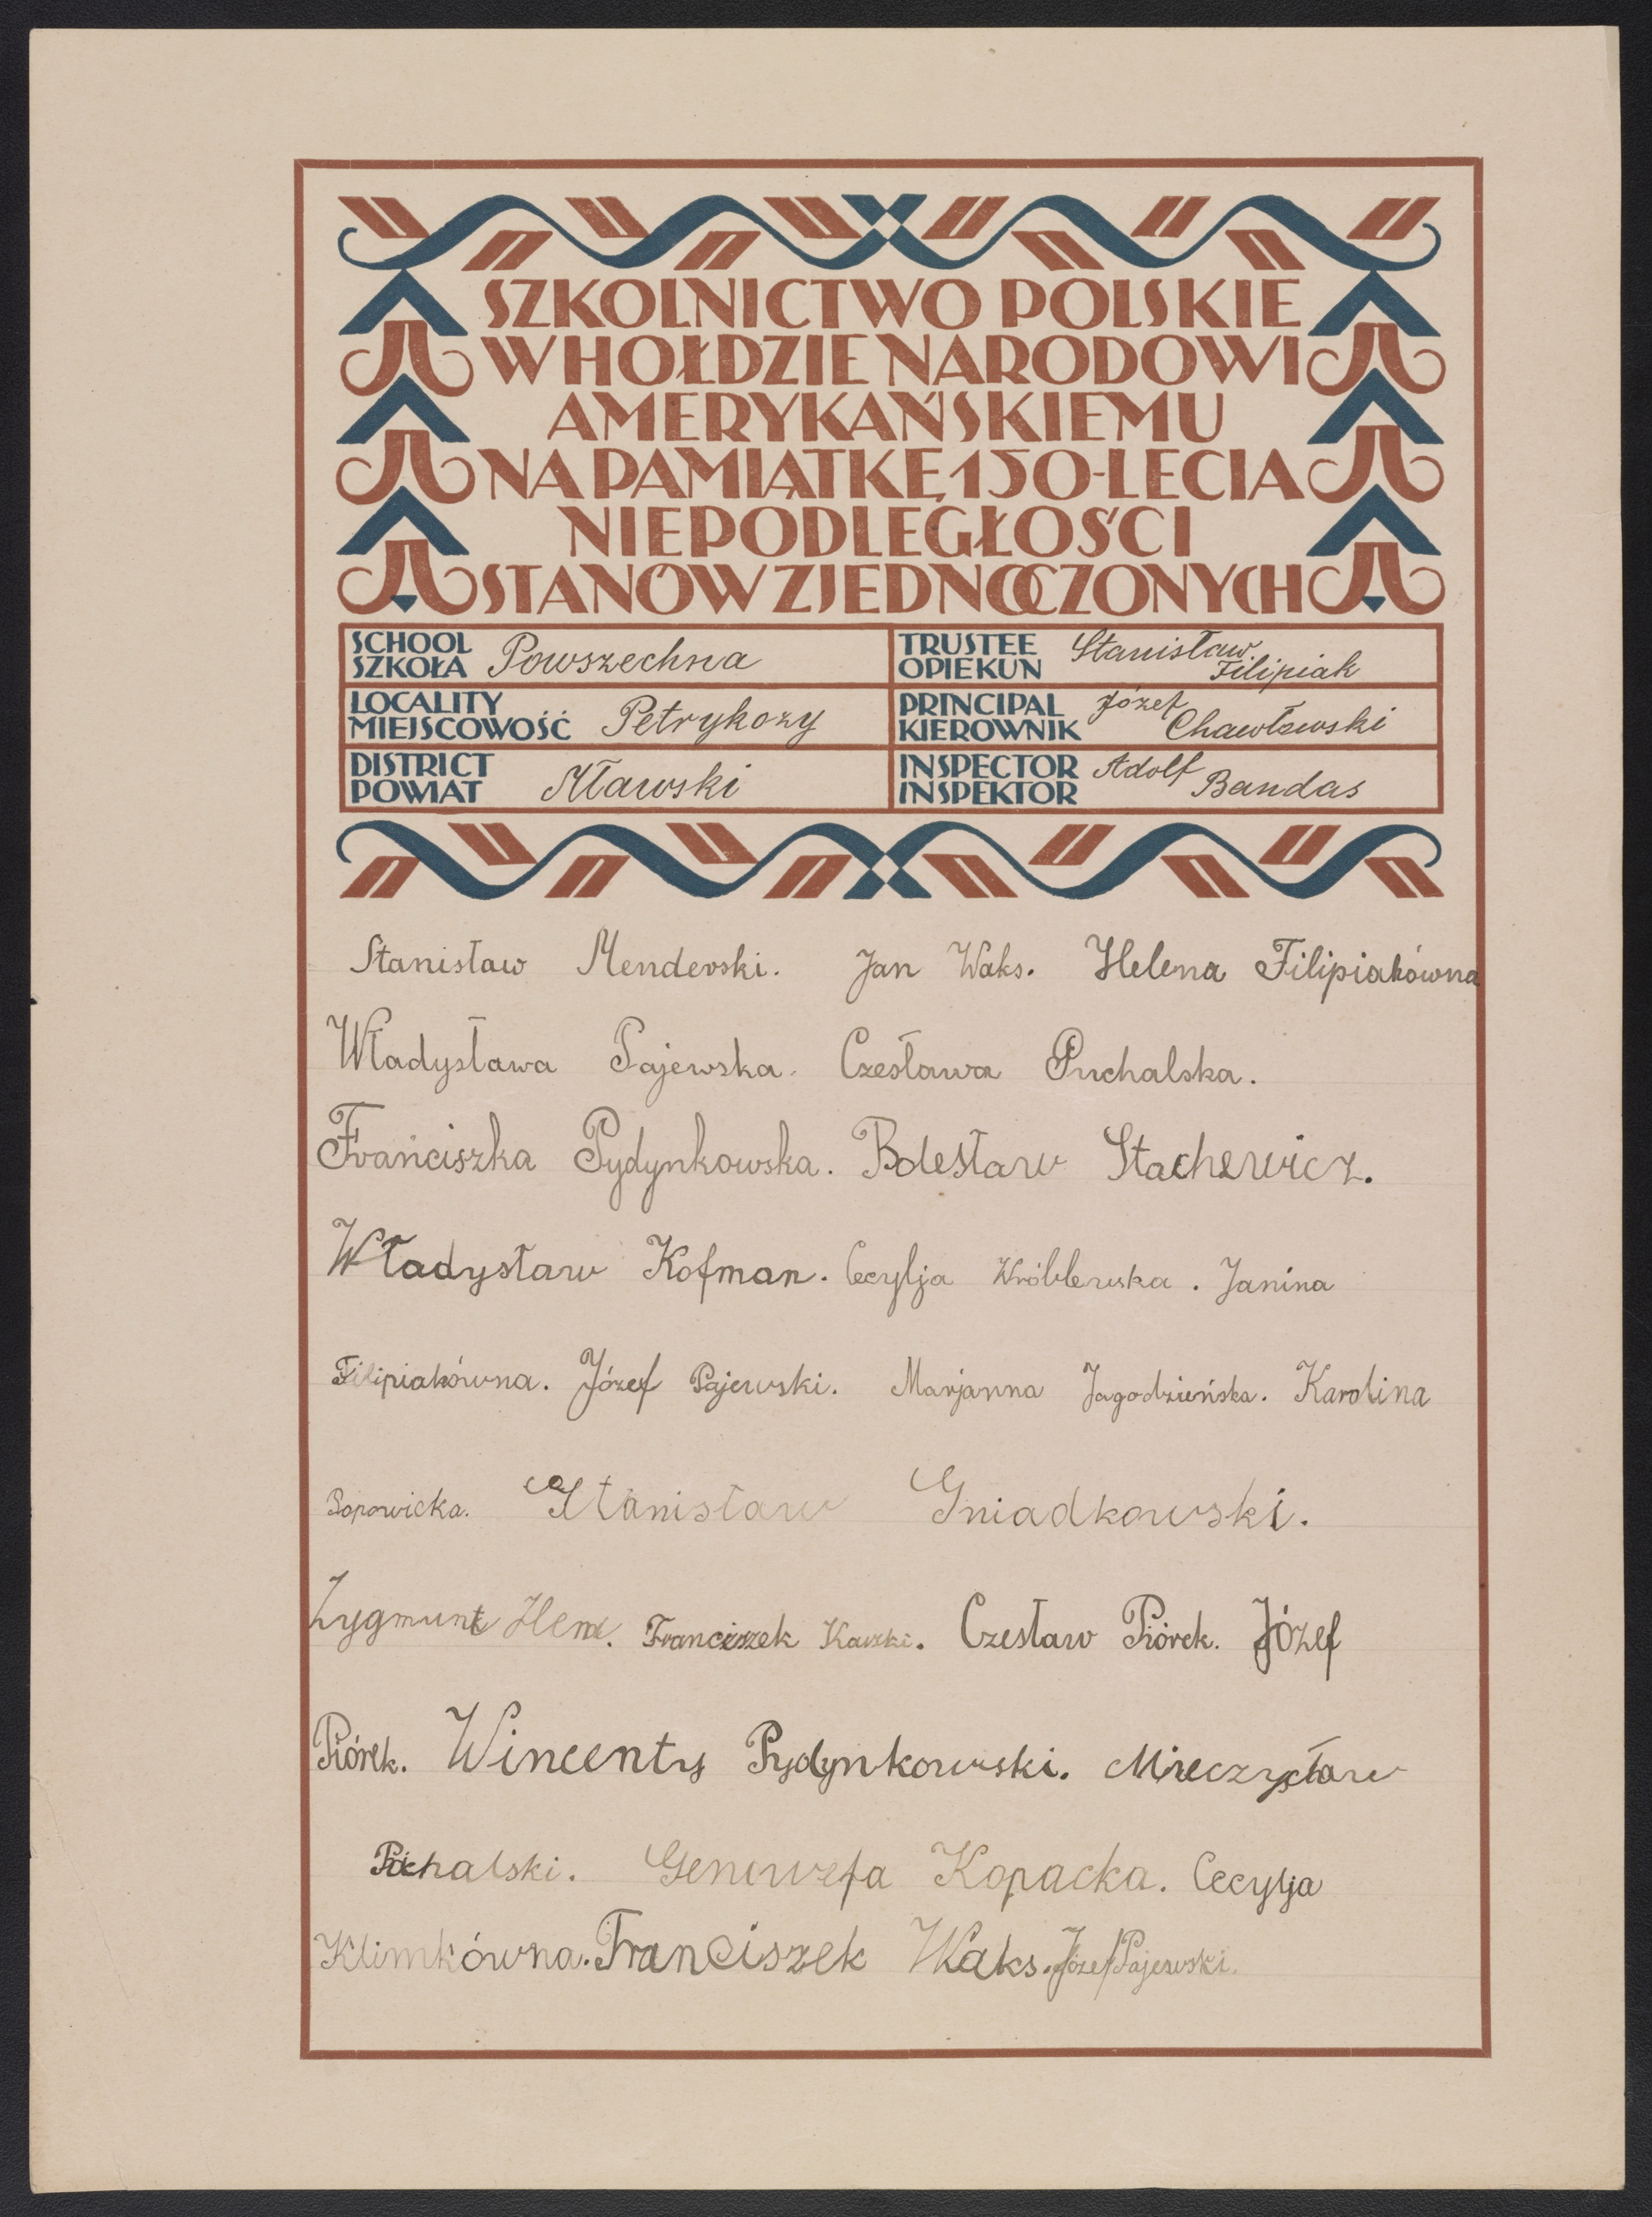 SZKOLNICTWO POLSKIE
W HOŁDZIE NARODOWI
AMERYKAŃSKIEMU
NA PAMIĄTKĘ 150-LECIA
NIEPODLEGŁOŚCI
STANÓW ZJEDNOCZONYCH
SCHOOL SZKOŁA Powszechna
TRUSTEE OPIEKUN Stanisław Filipiak
LOCALITY MIEJSCOWOŚĆ Petrykozy
PRINCIPAL KIEROWNIK Józef Chawłowski
DISTRICT POWIAT Mławski
INSPECTOR INSPEKTOR Adolf Bandas
Stanisław Menderski. Jan Waks. Helena Filipiakówna
Władysława Pajewska. Czesława Puchalska.
Franciszka Pydynkowska. Bolesław Stachewicz.
Władysław Kofman. Cecylja Wróblewska. Janina
Filipiakówna. Józef Pajewski. Marjanna Jagodzieńska. Karolina
Stanisław Gniadkowski.
Zygmunt Franciszek Czesław Piórek. Józef
Piórek. Wincenty Pydynkowski. Mieczysław
Genowefa Kopacka. Cecylja
Klimkówna. Franciszek Waks. Józef Pajewski.